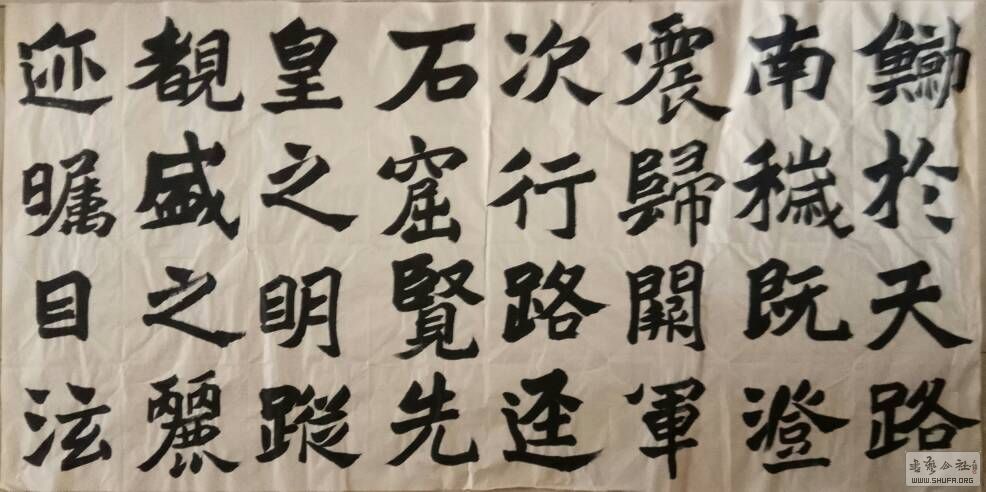 鯨於天路
南穢既澄
震歸闕軍
次行路逕
石窟覽先
皇之明蹤
覩盛之麗
迹矚目泫
書藝公社
WWW.SHUFA.ORG